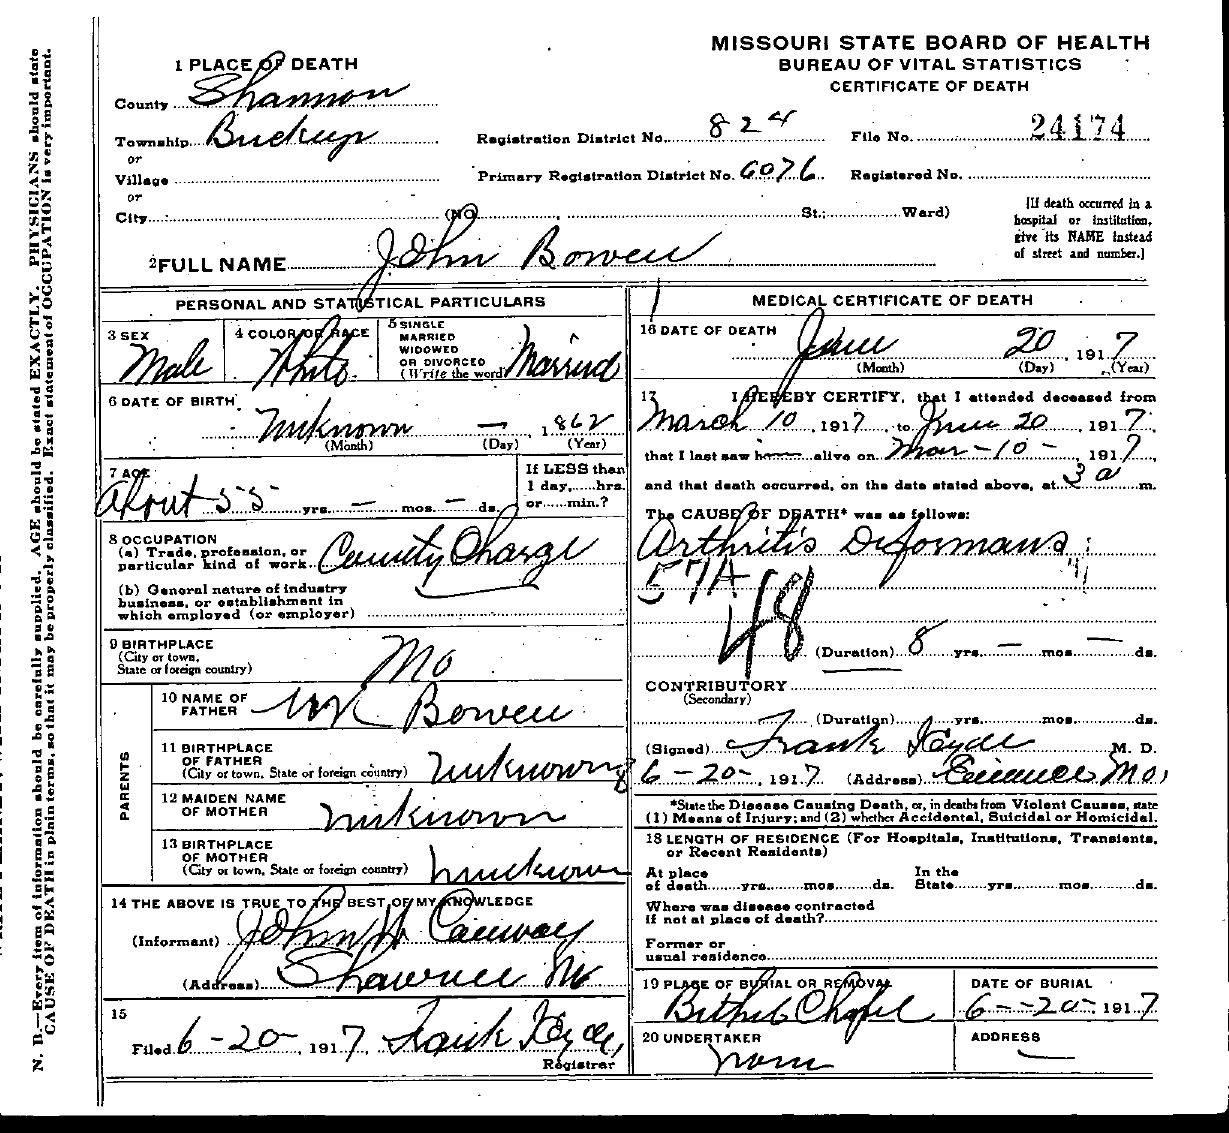 MISSOURI STATE BOARD OF HEALTH
BUREAU OF VITAL STATISTICS
CERTIFICATE OF DEATH
1 PLACE OF DEATH
County Shannon
Township
Registration District No. 824
File No. 24174
or
Village
Primary Registration District No. 6076
Registered No.
or
City (NO , St.; Ward)
[If death occurred in a
hospital or institution,
give its NAME instead
of street and number.]
2 FULL NAME John Bowen
PERSONAL AND STATISTICAL PARTICULARS
3 SEX
Male
4 COLOR OR RACE
White
5 SINGLE
MARRIED
WIDOWED
OR DIVORCED
(Write the word)
Married
6 DATE OF BIRTH
unknown — , 1862
(Month) (Day) (Year)
7 AGE
About 55 yrs. — mos. — ds.
If LESS than
1 day, hrs.
or min.?
8 OCCUPATION
(a) Trade, profession, or
particular kind of work County Charge
(b) General nature of industry
business, or establishment in
which employed (or employer)
9 BIRTHPLACE
(City or town,
State or foreign country)
Mo
PARENTS
10 NAME OF
FATHER Bowen
11 BIRTHPLACE
OF FATHER
(City or town, State or foreign country) unknown
12 MAIDEN NAME
OF MOTHER unknown
13 BIRTHPLACE
OF MOTHER
(City or town, State or foreign country) unknown
14 THE ABOVE IS TRUE TO THE BEST OF MY KNOWLEDGE
(Informant) John
(Address) Shawnee Mo
15
Filed 6-20-, 1917, Frank Hyde,
Registrar
MEDICAL CERTIFICATE OF DEATH
16 DATE OF DEATH
June 20, 1917
(Month) (Day) (Year)
17 I HEREBY CERTIFY, that I attended deceased from
March 10, 1917, to June 20, 1917,
that I last saw h alive on Mar-10-, 1917,
and that death occurred, on the date stated above, at 3 a m.
The CAUSE OF DEATH* was as follows:
Arthritis Deformans
57A
48
(Duration) 8 yrs. — mos. — ds.
CONTRIBUTORY
(Secondary)
(Duration) yrs. mos. ds.
(Signed) Frank Hyde M. D.
6-20-, 1917 (Address) Eminence Mo,
*State the Disease Causing Death, or, in deaths from Violent Causes, state
(1) Means of Injury; and (2) whether Accidental, Suicidal or Homicidal.
18 LENGTH OF RESIDENCE (For Hospitals, Institutions, Transients,
or Recent Residents)
At place
of death yrs. mos. ds.
In the
State yrs. mos. ds.
Where was disease contracted
if not at place of death?
Former or
usual residence
19 PLACE OF BURIAL OR REMOVAL
Bethel Chapel
DATE OF BURIAL
6--20-, 1917
20 UNDERTAKER
none
ADDRESS
—
N. B.—Every item of information should be carefully supplied. AGE should be stated EXACTLY. PHYSICIANS should state
CAUSE OF DEATH in plain terms, so that it may be properly classified. Exact statement of OCCUPATION is very important.